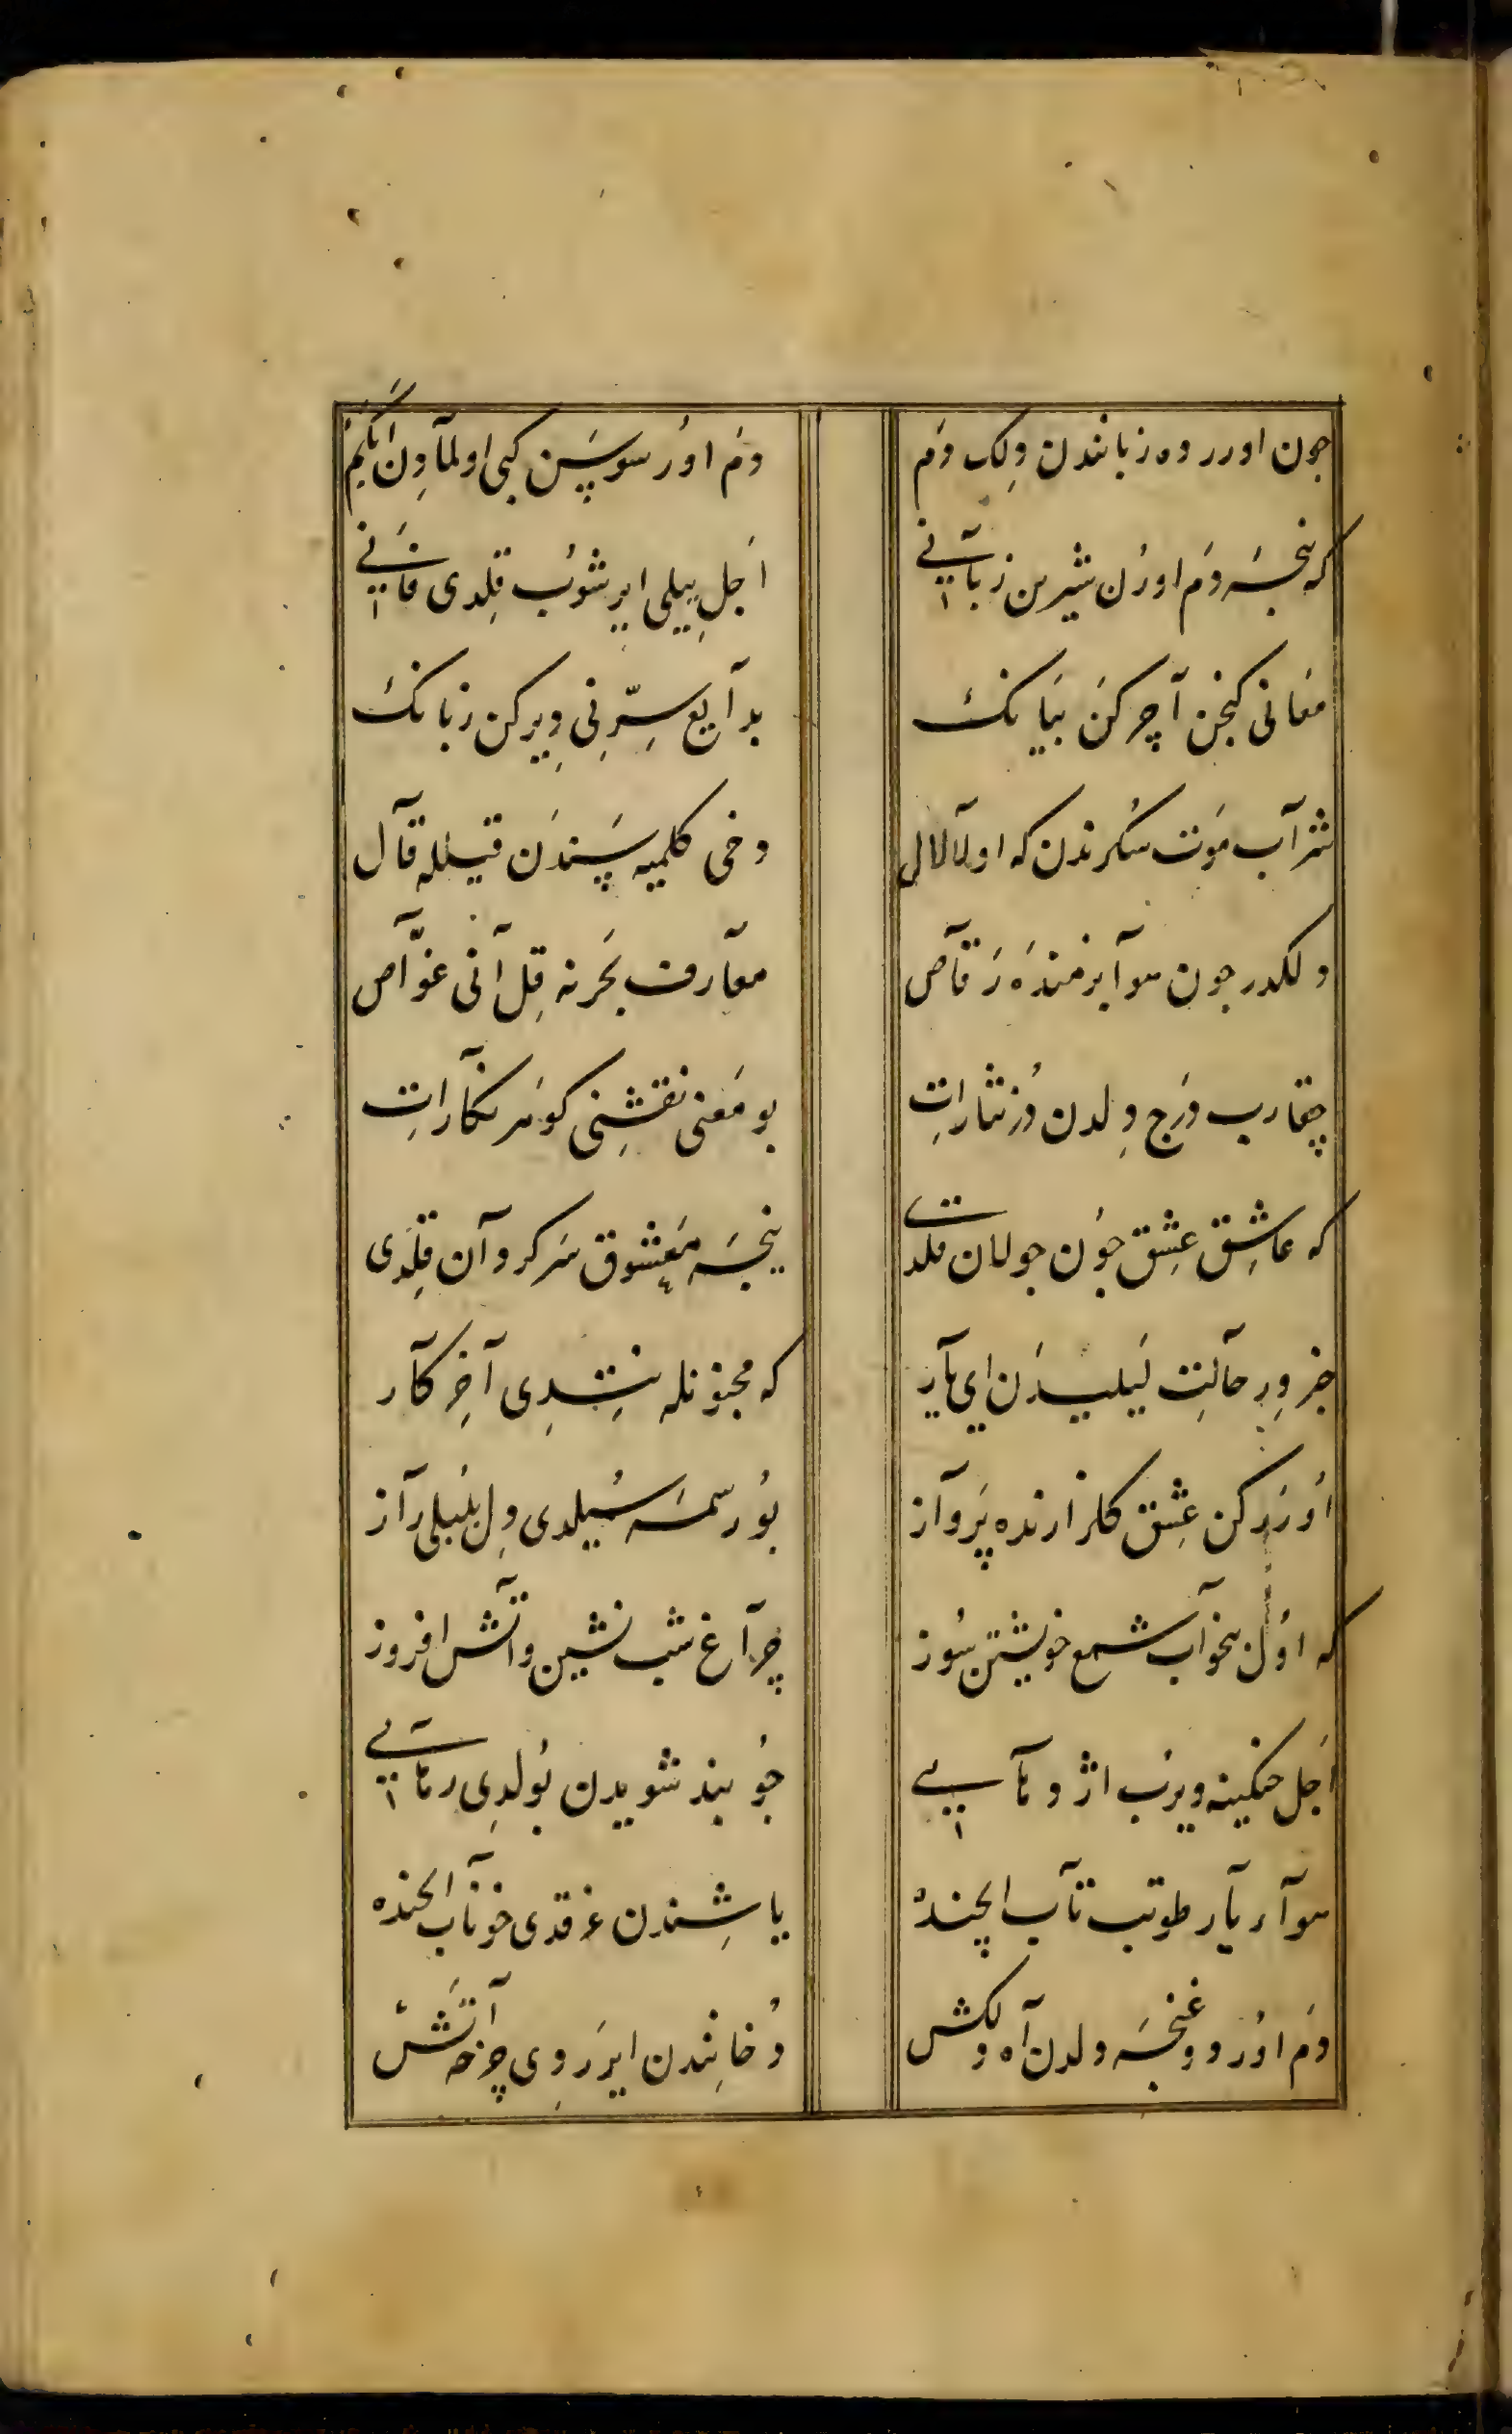 چون اورر ده زبانندن دلک دم    دم اور سوسن کبی اولمادن ابکم
که نیجه دم اورن شیرین زبانی    اجل ییلی ایرشوب قلدی فانی
معانی کنجن آچرکن بیانک    بدایع سرنی ویرکن زبانک
شراب موت سکرندن که اولا لال    دخی کلمیه سندن قیلله قال
دلکدر چون سوا بزمنده رقاص    معارف بحرنه قل آنی غواص
چقارب درج دلدن در نثار ات    بو معنی نقشنی کوهر نکار ات
که عاشق عشق چون جولان قلدی    نیجه معشوق سرکردان قلدی
خبر ویر حالت لیلیدن ای یار    که مجنونله نتدی آخر کار
اوررکن عشق کلزارنده پرواز    بو رسمه سیلدی دل بلبلی راز
که اول بیخواب شمع خویشتن سوز    چراغ شب نشین و آتش افروز
اجل جنکینه ویرب اژدهایی    چو بند شویدن بولدی رهایی
سوار یار طوتب تاب ایچنده    یاشندن غرقدی خوناب ایچنده
دم اورردی غنچه دلدن آه دلکش    دخانندن ایرردی چرخه آتش